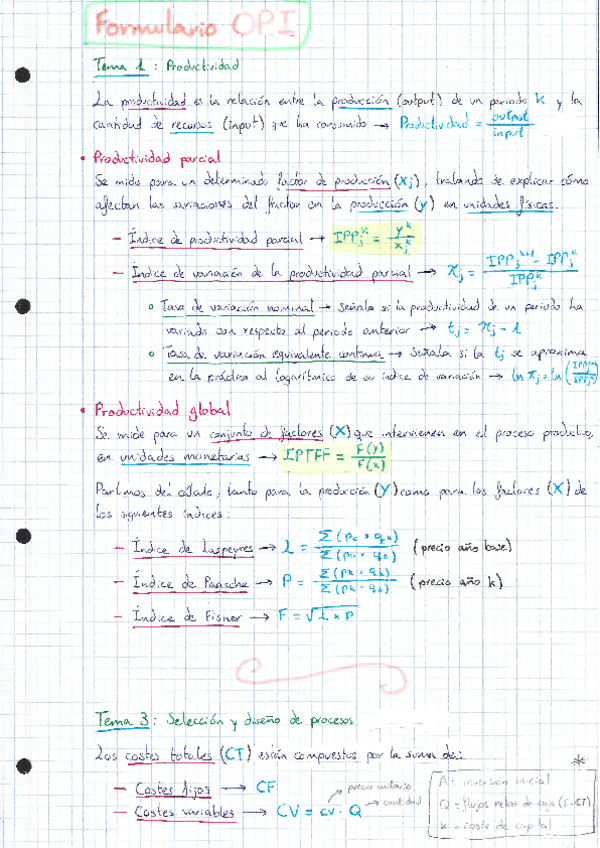 Formulario OPI
Tema 1: Productividad
La productividad es la relación entre la producción (output) de un periodo k y la
cantidad de recursos (input) que ha consumido → Productividad = output / input
• Productividad parcial
Se mide para un determinado factor de producción (Xj), tratando de explicar cómo
afectan las variaciones del factor en la producción (y) en unidades físicas.
– Índice de productividad parcial → IPPj^k = y^k / xj^k
– Índice de variación de la productividad parcial → πj = (IPPj^k+1 - IPPj^k) / IPPj^k
○ Tasa de variación nominal → Señala si la productividad de un periodo ha
variado con respecto al periodo anterior → tj = πj - 1
○ Tasa de variación equivalente continua → Señala si la tj se aproxima
en la práctica al logaritmico de su índice de variación → ln πj = ln
• Productividad global
Se mide para un conjunto de factores (X) que intervienen en el proceso productivo,
en unidades monetarias → IPTFF = F(y) / F(x)
Partimos del cálculo, tanto para la producción (Y) como para los factores (X) de
los siguientes índices:
– Índice de Laspeyres → L = Σ(p0 · qk) / Σ(p0 · q0) (precio año base)
– Índice de Paasche → P = Σ(pk · qk) / Σ(pk · q0) (precio año k)
– Índice de Fisher → F = √L x P
Tema 3: Selección y diseño de procesos
Los costes totales (CT) están compuestos por la suma de:
– Costes fijos → CF
– Costes variables → CV = cv · Q
precio unitario
cantidad
*
A: inversión inicial
Q = flujos netos de caja (I-CT)
k = coste de capital